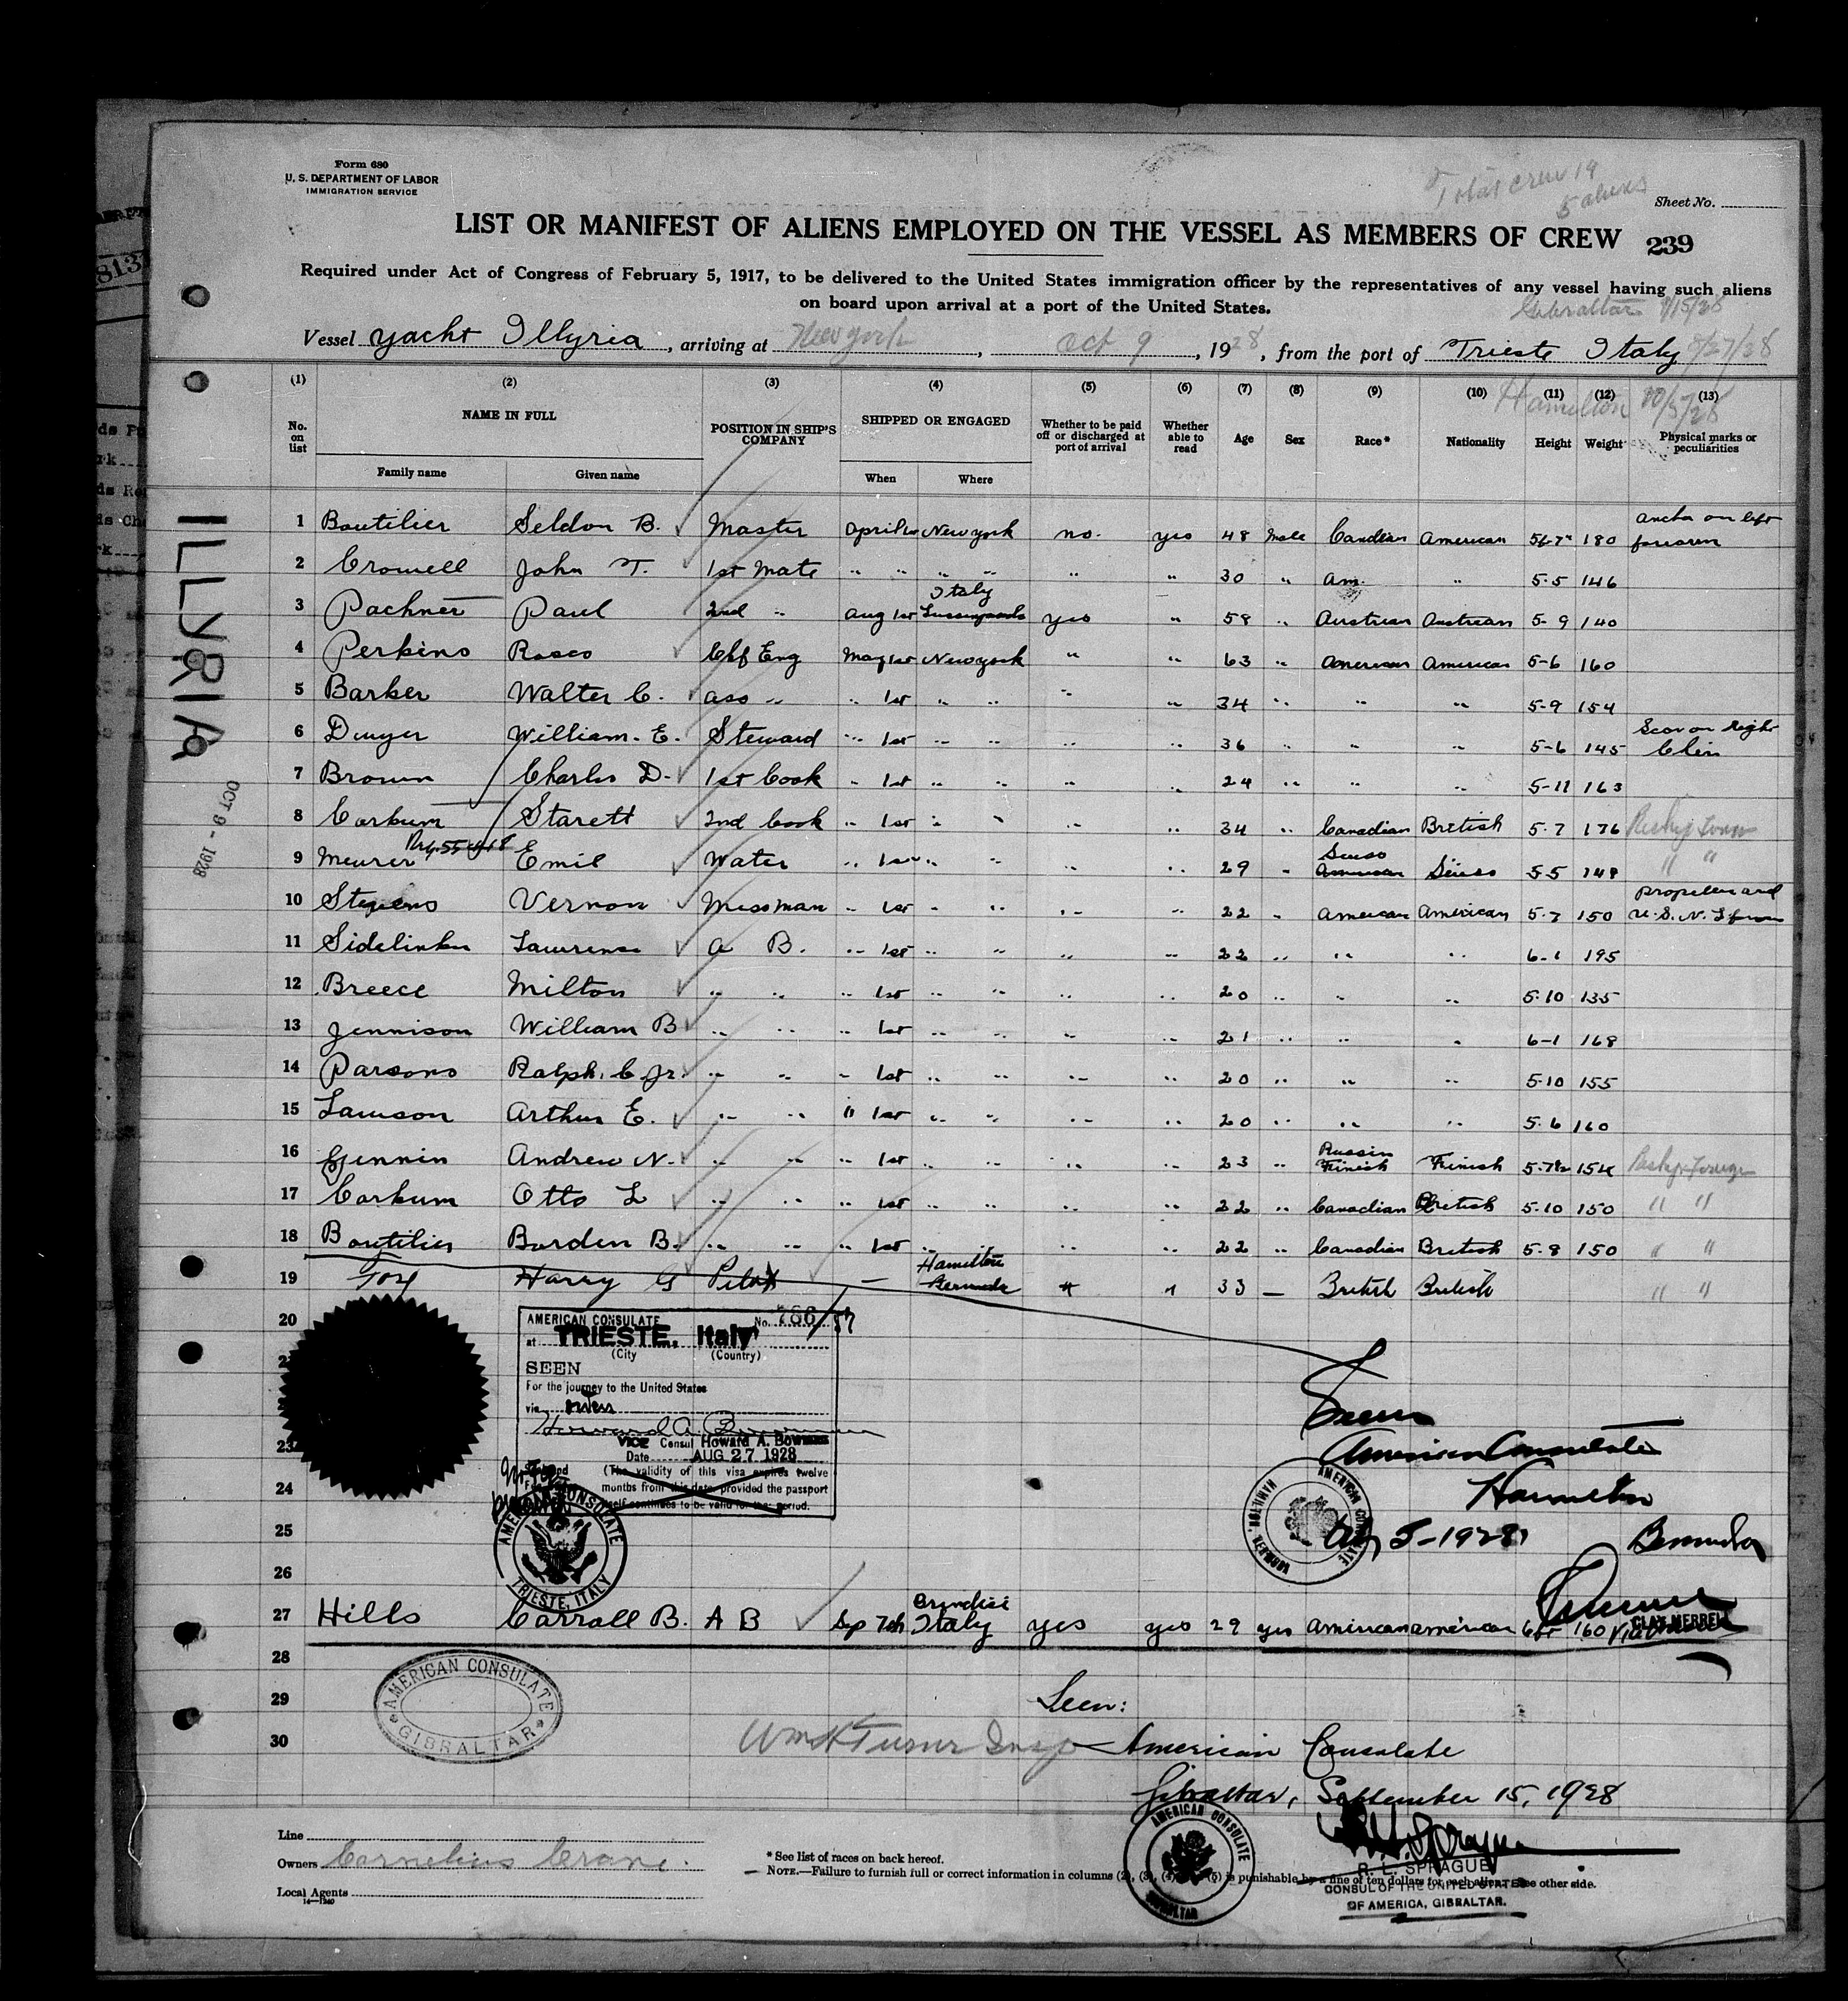 Form 680
U. S. DEPARTMENT OF LABOR
IMMIGRATION SERVICE
Total crew 19
5 aliens
Sheet No.
LIST OR MANIFEST OF ALIENS EMPLOYED ON THE VESSEL AS MEMBERS OF CREW 239
Required under Act of Congress of February 5, 1917, to be delivered to the United States immigration officer by the representatives of any vessel having such aliens
on board upon arrival at a port of the United States.
Gibraltar 9/15/28
Vessel yacht Illyria, arriving at New york, Oct 9, 1928, from the port of Trieste Italy 8/27/28
Hamilton 10/5/28
(1) (2) (3) (4) (5) (6) (7) (8) (9) (10) (11) (12) (13)
No. on list NAME IN FULL Family name Given name POSITION IN SHIP'S COMPANY SHIPPED OR ENGAGED When Where Whether to be paid off or discharged at port of arrival Whether able to read Age Sex Race* Nationality Height Weight Physical marks or peculiarities
1 Boutilier Seldon B. Master April New york no. yes 48 Male Candian American 180 ancha on left forearm
2 Crowell John T. 1st Mate " " " " " " 30 " Am. " 5-5 146
3 Pachner Paul 2nd " Aug 1st Italy yes " 58 " Austrian Austrian 5-9 140
4 Perkins Rosco Chf Eng May 1st New york " " 63 " American American 5-6 160
5 Barker Walter C. ass " " 1st " " " " 34 " " " 5-9 154
6 Dwyer William. E. Steward " 1st " " " " 36 " " " 5-6 145 Scar on right Chin
7 Brown Charles D. 1st Cook " 1st " " " " 24 " " " 5-11 163
8 Corkum Starett 2nd Cook " 1st " " " " 34 " Canadian British 5-7 176
9 Meurer Emil Water " 1st " " " 29 " Swiss American Swiss 5-5 148 " "
10 Stephens Vernon Messman " 1st " " " " 22 " American American 5-7 150 propellers and U.S.N.
11 Sidelinker Lawrence A B. " 1st " " " " 22 " " " 6-1 195
12 Breece Milton " " " 1st " " " " 20 " " " 5-10 135
13 Jennison William B " " " 1st " " " " 21 " " " 6-1 168
14 Parsons Ralph. C. Jr. " " " 1st " " " " 20 " " " 5-10 155
15 Lawson Arthur E. " " " 1st " " " " 20 " " " 5-6 160
16 Gennin Andrew N. " " " 1st " " " " 23 " Russin Finish Finish 5-7½ 154
17 Corkum Otto L " " " 1st " " " " 22 " Canadian British 5-10 150 " "
18 Boutilier Borden B. " " " 1st " " " " 22 " Canadian British 5-8 150 " "
19 Harry G Pilot — Hamilton Bermuda " " 33 — British British " "
20
AMERICAN CONSULATE No. 786/87
at TRIESTE. Italy
(City (Country)
SEEN
For the journey to the United States
via
Howard A. Bowman
VICE Consul Howard A. Bowman
Date AUG 27 1928
(The validity of this visa expires twelve
months from this date provided the passport
itself continues to be valid for the period.
AMERICAN CONSULATE TRIESTE, ITALY
Seen
American Consulate
Hamilton
Bermuda
Oct 5-1928
AMERICAN CONSULATE HAMILTON, BERMUDA
23
24
25
26
27 Hills Carroll B. A B Sep 7th Brindisi Italy yes yes 29 yes American american 160
CLAY MERRELL
28
29
30
AMERICAN CONSULATE GIBRALTAR
Seen:
Wm H Turner Insp American Consulate
Gibraltar, September 15, 1928
AMERICAN CONSULATE GIBRALTAR
R. L. SPRAGUE
CONSUL OF THE UNITED STATES
OF AMERICA, GIBRALTAR.
Line
Owners Cornelius Crane.
Local Agents
14—1240
* See list of races on back hereof.
NOTE.—Failure to furnish full or correct information in columns (2), (3), (4) (5) is punishable by a fine of ten dollars for each alien. See other side.
ILLYRIA
OCT 9 - 1928